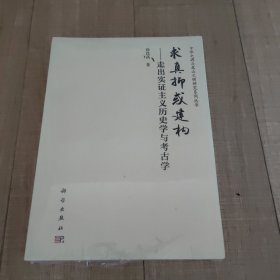 求真抑或建构
——走出实证主义历史学与考古学
著
科学出版社